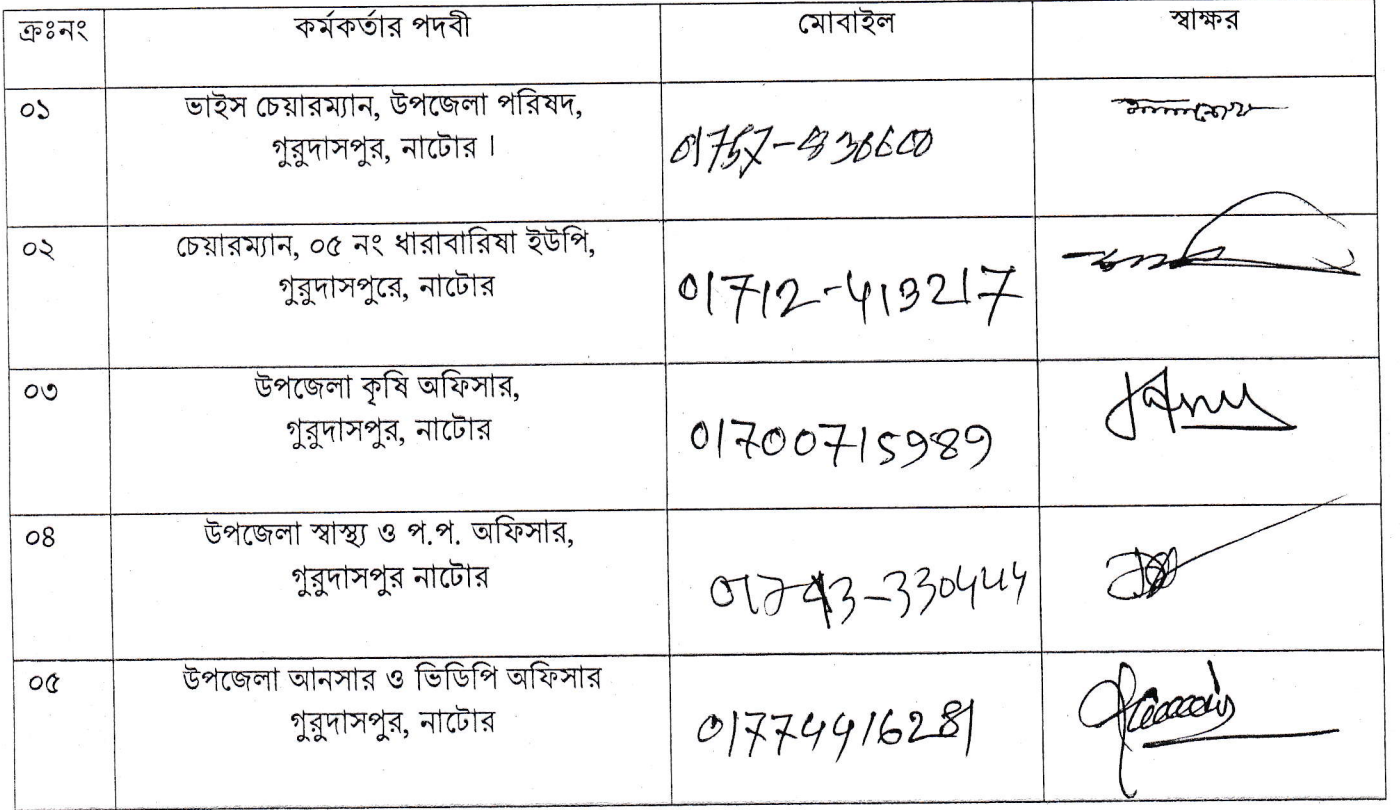 ক্রঃনং কর্মকর্তার পদবী মোবাইল স্বাক্ষর
০১ ভাইস চেয়ারম্যান, উপজেলা পরিষদ,
গুরুদাসপুর, নাটোর ।
০২ চেয়ারম্যান, ০৫ নং ধারাবারিষা ইউপি,
গুরুদাসপুরে, নাটোর 01712-413217
০৩ উপজেলা কৃষি অফিসার,
গুরুদাসপুর, নাটোর 01700715989
০৪ উপজেলা স্বাস্থ্য ও প.প. অফিসার,
গুরুদাসপুর নাটোর 01743-330444
০৫ উপজেলা আনসার ও ভিডিপি অফিসার
গুরুদাসপুর, নাটোর 01774416281